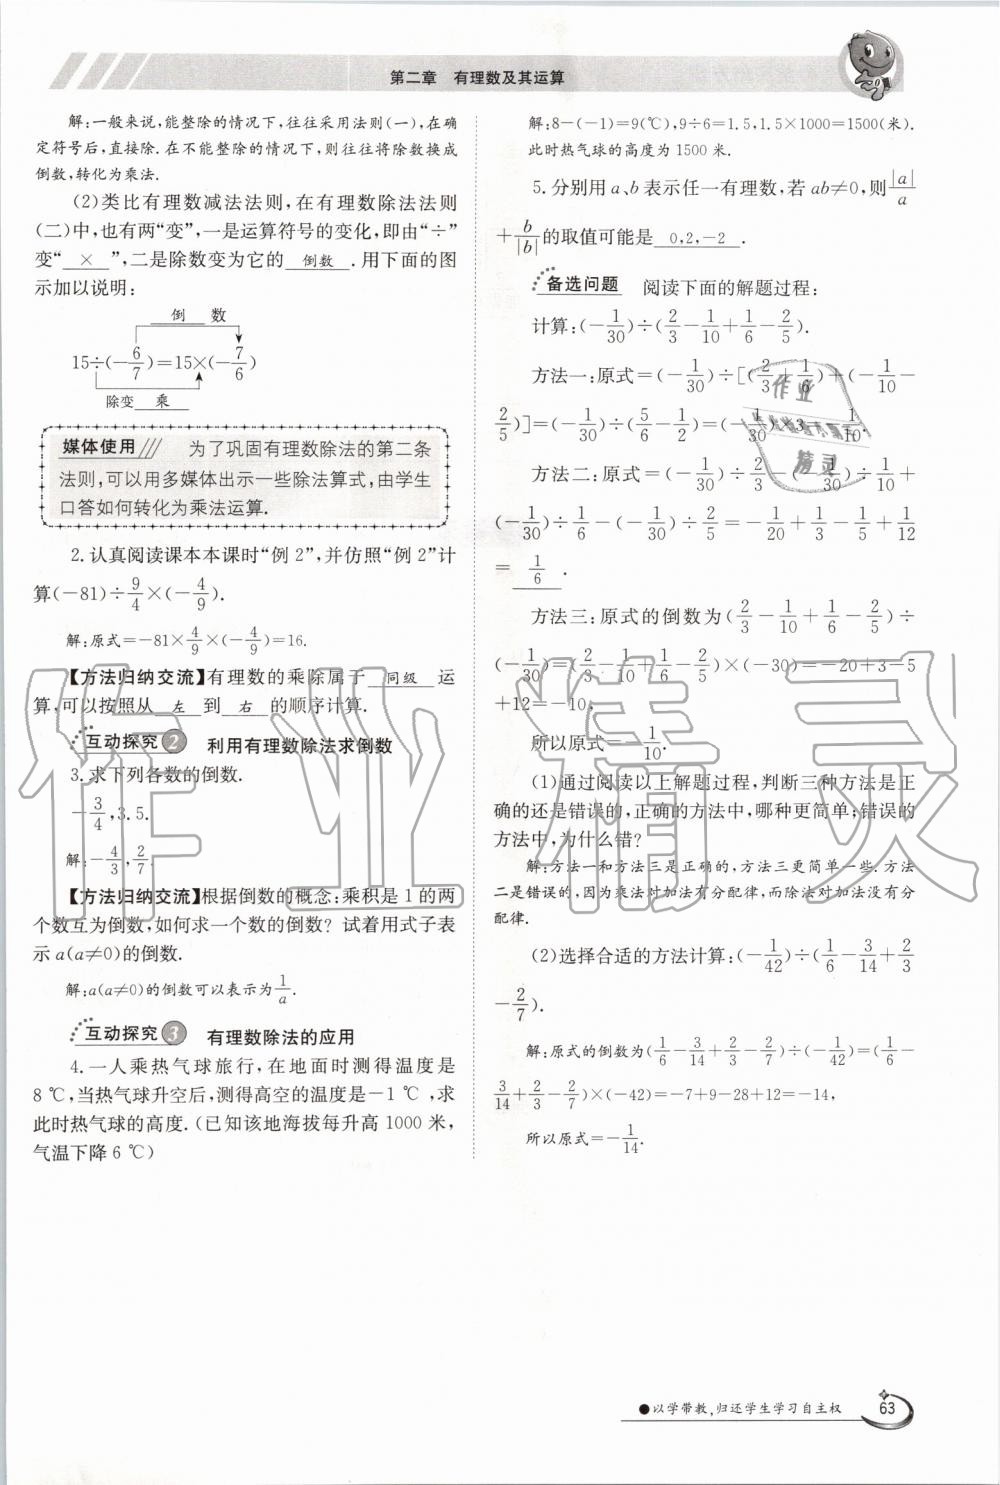 第二章　有理数及其运算
解:一般来说,能整除的情况下,往往采用法则(一),在确
定符号后,直接除.在不能整除的情况下,则往往将除数换成
倒数,转化为乘法.
(2)类比有理数减法法则,在有理数除法法则
(二)中,也有两“变”,一是运算符号的变化,即由“÷”
变“ × ”,二是除数变为它的 倒数 .用下面的图
示加以说明:
倒 数
15÷(-6/7)=15×(-7/6)
除变 乘
媒体使用 为了巩固有理数除法的第二条
法则,可以用多媒体出示一些除法算式,由学生
口答如何转化为乘法运算.
2.认真阅读课本本课时“例 2”,并仿照“例 2”计
算(-81)÷9/4×(-4/9).
解:原式=-81×4/9×(-4/9)=16.
【方法归纳交流】有理数的乘除属于 同级 运
算,可以按照从 左 到 右 的顺序计算.
互动探究 2 利用有理数除法求倒数
3.求下列各数的倒数.
-3/4,3.5.
解:-4/3,2/7.
【方法归纳交流】根据倒数的概念:乘积是 1 的两
个数互为倒数,如何求一个数的倒数? 试着用式子表
示 a(a≠0)的倒数.
解:a(a≠0)的倒数可以表示为1/a.
互动探究 3 有理数除法的应用
4.一人乘热气球旅行,在地面时测得温度是
8 ℃,当热气球升空后,测得高空的温度是-1 ℃,求
此时热气球的高度.(已知该地海拔每升高 1000 米,
气温下降 6 ℃)
解:8-(-1)=9(℃),9÷6=1.5,1.5×1000=1500(米).
此时热气球的高度为 1500 米.
5.分别用 a、b 表示任一有理数,若 ab≠0,则|a|/a
+b/|b|的取值可能是 0,2,-2 .
备选问题 阅读下面的解题过程:
计算:(-1/30)÷(2/3-1/10+1/6-2/5).
方法一:原式=(-1/30)÷[(2/3+1/6)+(-1/10-
2/5)]=(-1/30)÷(5/6-1/2)=(-1/30)×3=-1/10.
方法二:原式=(-1/30)÷2/3-(-1/30)÷1/10+
(-1/30)÷1/6-(-1/30)÷2/5=-1/20+1/3-1/5+1/12
= 1/6 .
方法三:原式的倒数为(2/3-1/10+1/6-2/5)÷
(-1/30)=(2/3-1/10+1/6-2/5)×(-30)=-20+3-5
+12=-10,
所以原式=-1/10.
(1)通过阅读以上解题过程,判断三种方法是正
确的还是错误的,正确的方法中,哪种更简单;错误的
方法中,为什么错?
解:方法一和方法三是正确的,方法三更简单一些.方法
二是错误的,因为乘法对加法有分配律,而除法对加法没有分
配律.
(2)选择合适的方法计算:(-1/42)÷(1/6-3/14+2/3
-2/7).
解:原式的倒数为(1/6-3/14+2/3-2/7)÷(-1/42)=(1/6-
3/14+2/3-2/7)×(-42)=-7+9-28+12=-14,
所以原式=-1/14.
●以学带教,归还学生学习自主权
63
作业精灵
作业
精灵